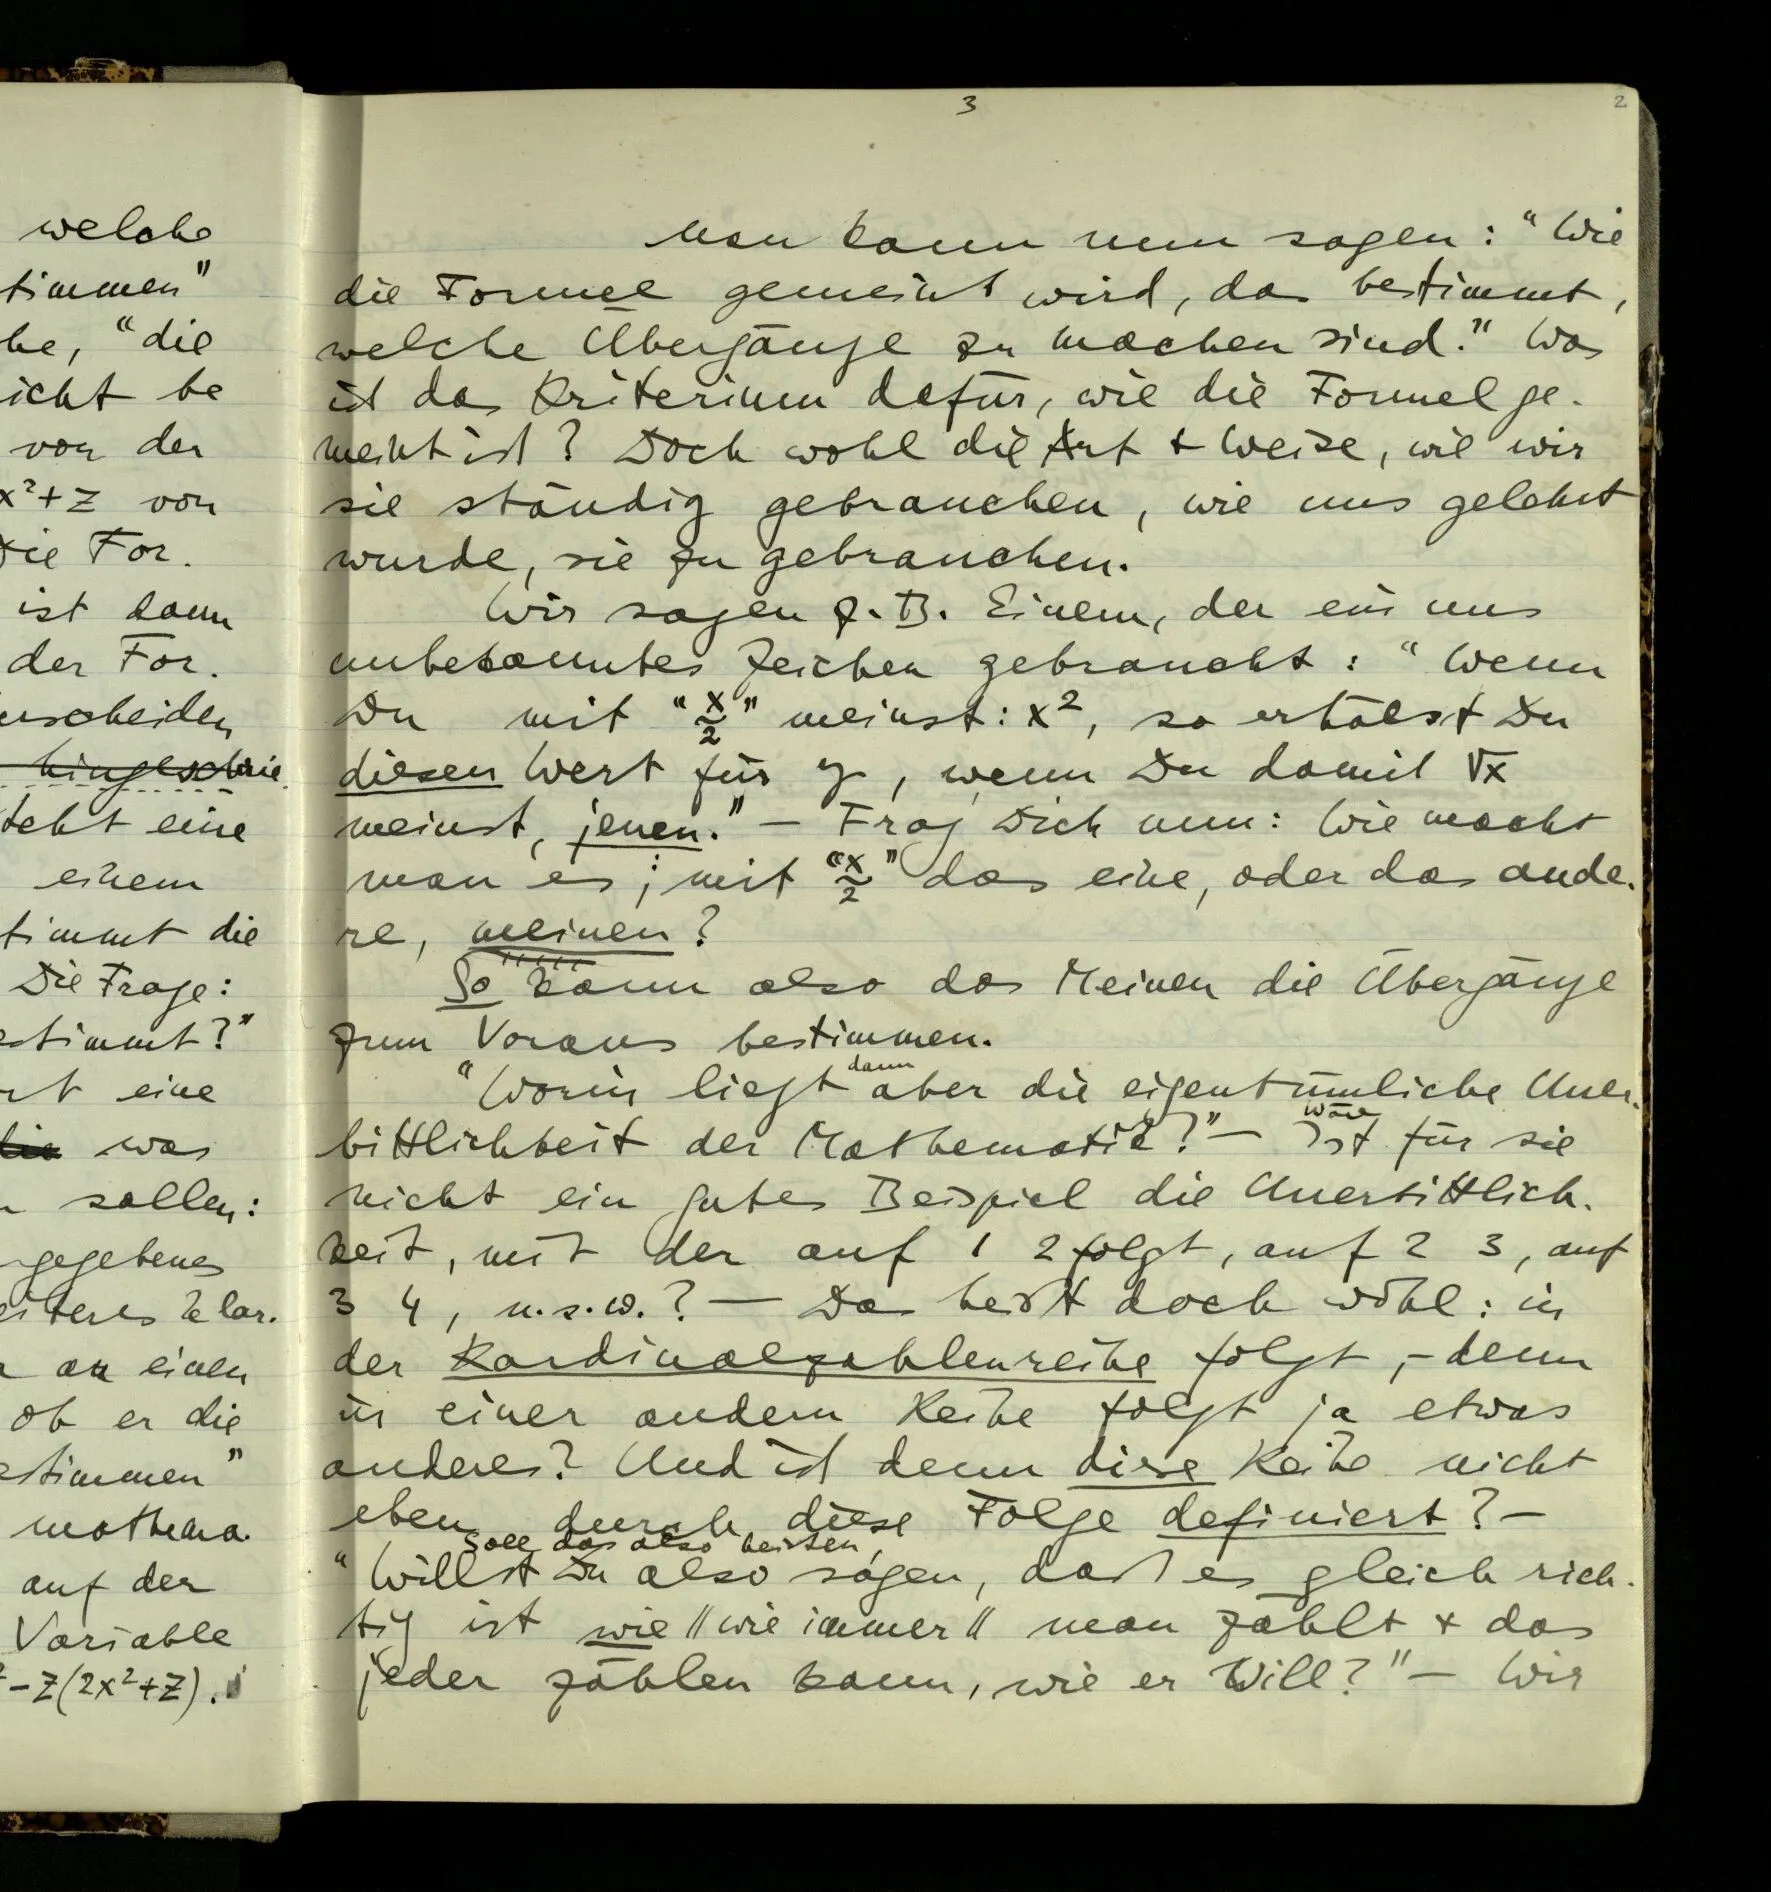 3
2
welche
timmen"
he, "die
icht be
von der
x²+z von
Die For-
ist dann
der For-
erscheiden
hingeschrie
teht eine
einem
timmt die
Die Frage:
estimmt?"
rt eine
die was
sollen:
gegebenes
eiteres klar.
an einen
ob er die
estimmen"
mathema-
auf der
Variable
²-z(2x²+z).
Man kann nun sagen: "Wie
die Formel gemeint wird, das bestimmt,
welche Übergänge zu machen sind." Was
ist das Kriterium dafür, wie die Formel ge-
meint ist? Doch wohl die Art + Weise, wie wir
sie ständig gebrauchen, wie uns gelehrt
wurde, sie zu gebrauchen.
Wir sagen z.B. Einem, der ein uns
unbekanntes Zeichen gebraucht: "Wenn
Du mit "x/2" meinst: x², so erhälst Du
diesen Wert für y, wenn Du damit √x
meinst, jenen." – Frag Dich nun: Wie macht
man es; mit "x/2" das eine, oder das ande-
re, meinen?
So kann also das Meinen die Übergänge
zum Voraus bestimmen.
dann
"Worin liegt aber die eigentümliche Uner-
wäre
bittlichkeit der Mathematik?" – Ist für sie
nicht ein gutes Beispiel die Unerbittlich-
keit, mit der auf 1 2 folgt, auf 2 3, auf
3 4, u.s.w.? — Das heißt doch wohl: in
der Kardinalzahlenreihe folgt, – denn
in einer andern Reihe folgt ja etwas
anderes? Und ist denn diese Reihe nicht
eben durch diese Folge definiert? –
Soll das also heißen,
"Willst Du also sagen, daß es gleich rich-
tig ist wie // wie immer // man zählt + das
jeder zählen kann, wie er will?" – Wir